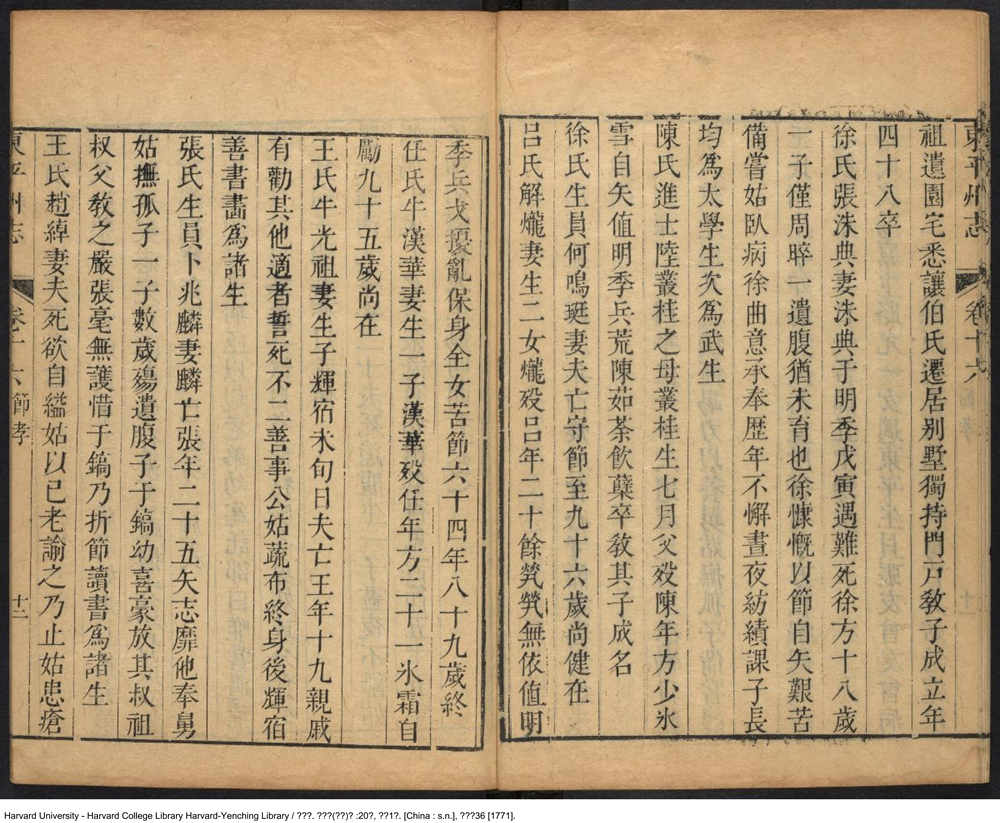 東平州志
卷十六
祖遺園宅悉讓伯氏遷居别墅獨持門戸敎子成立年
四十八卒
徐氏張洙典妻洙典于明季戊寅遇難死徐方十八歲
一子僅周晬一遺腹猶未育也徐慷慨以節自矢艱苦
備嘗姑臥病徐曲意承奉歷年不懈晝夜紡績課子長
均爲太學生次爲武生
陳氏進士陸叢桂之母叢桂生七月父歿陳年方少氷
雪自矢值明季兵荒陳茹茶飲蘗卒敎其子成名
徐氏生員何鳴珽妻夫亡守節至九十六歲尚健在
呂氏解爖妻生二女爖歿呂年二十餘煢煢無依值明
季兵戈擾亂保身全女苦節六十四年八十九歲終
任氏牛漢華妻生一子漢華歿任年方二十一氷霜自
勵九十五歲尚在
王氏牛光祖妻生子輝宿未旬日夫亡王年十九親戚
有勸其他適者誓死不二善事公姑蔬布終身後輝宿
善書畵爲諸生
張氏生員卜兆麟妻麟亡張年二十五矢志靡他奉舅
姑撫孤子一子數歲殤遺腹子于鎬幼喜豪放其叔祖
叔父敎之嚴張毫無護惜于鎬乃折節讀書爲諸生
王氏趙緯妻夫死欲自縊姑以已老諭之乃止姑患瘡
東平州志
卷十六 節孝
十二
Harvard University - Harvard College Library Harvard-Yenching Library / ???. ???(??)? :20?, ??1?. [China : s.n.], ???36 [1771].